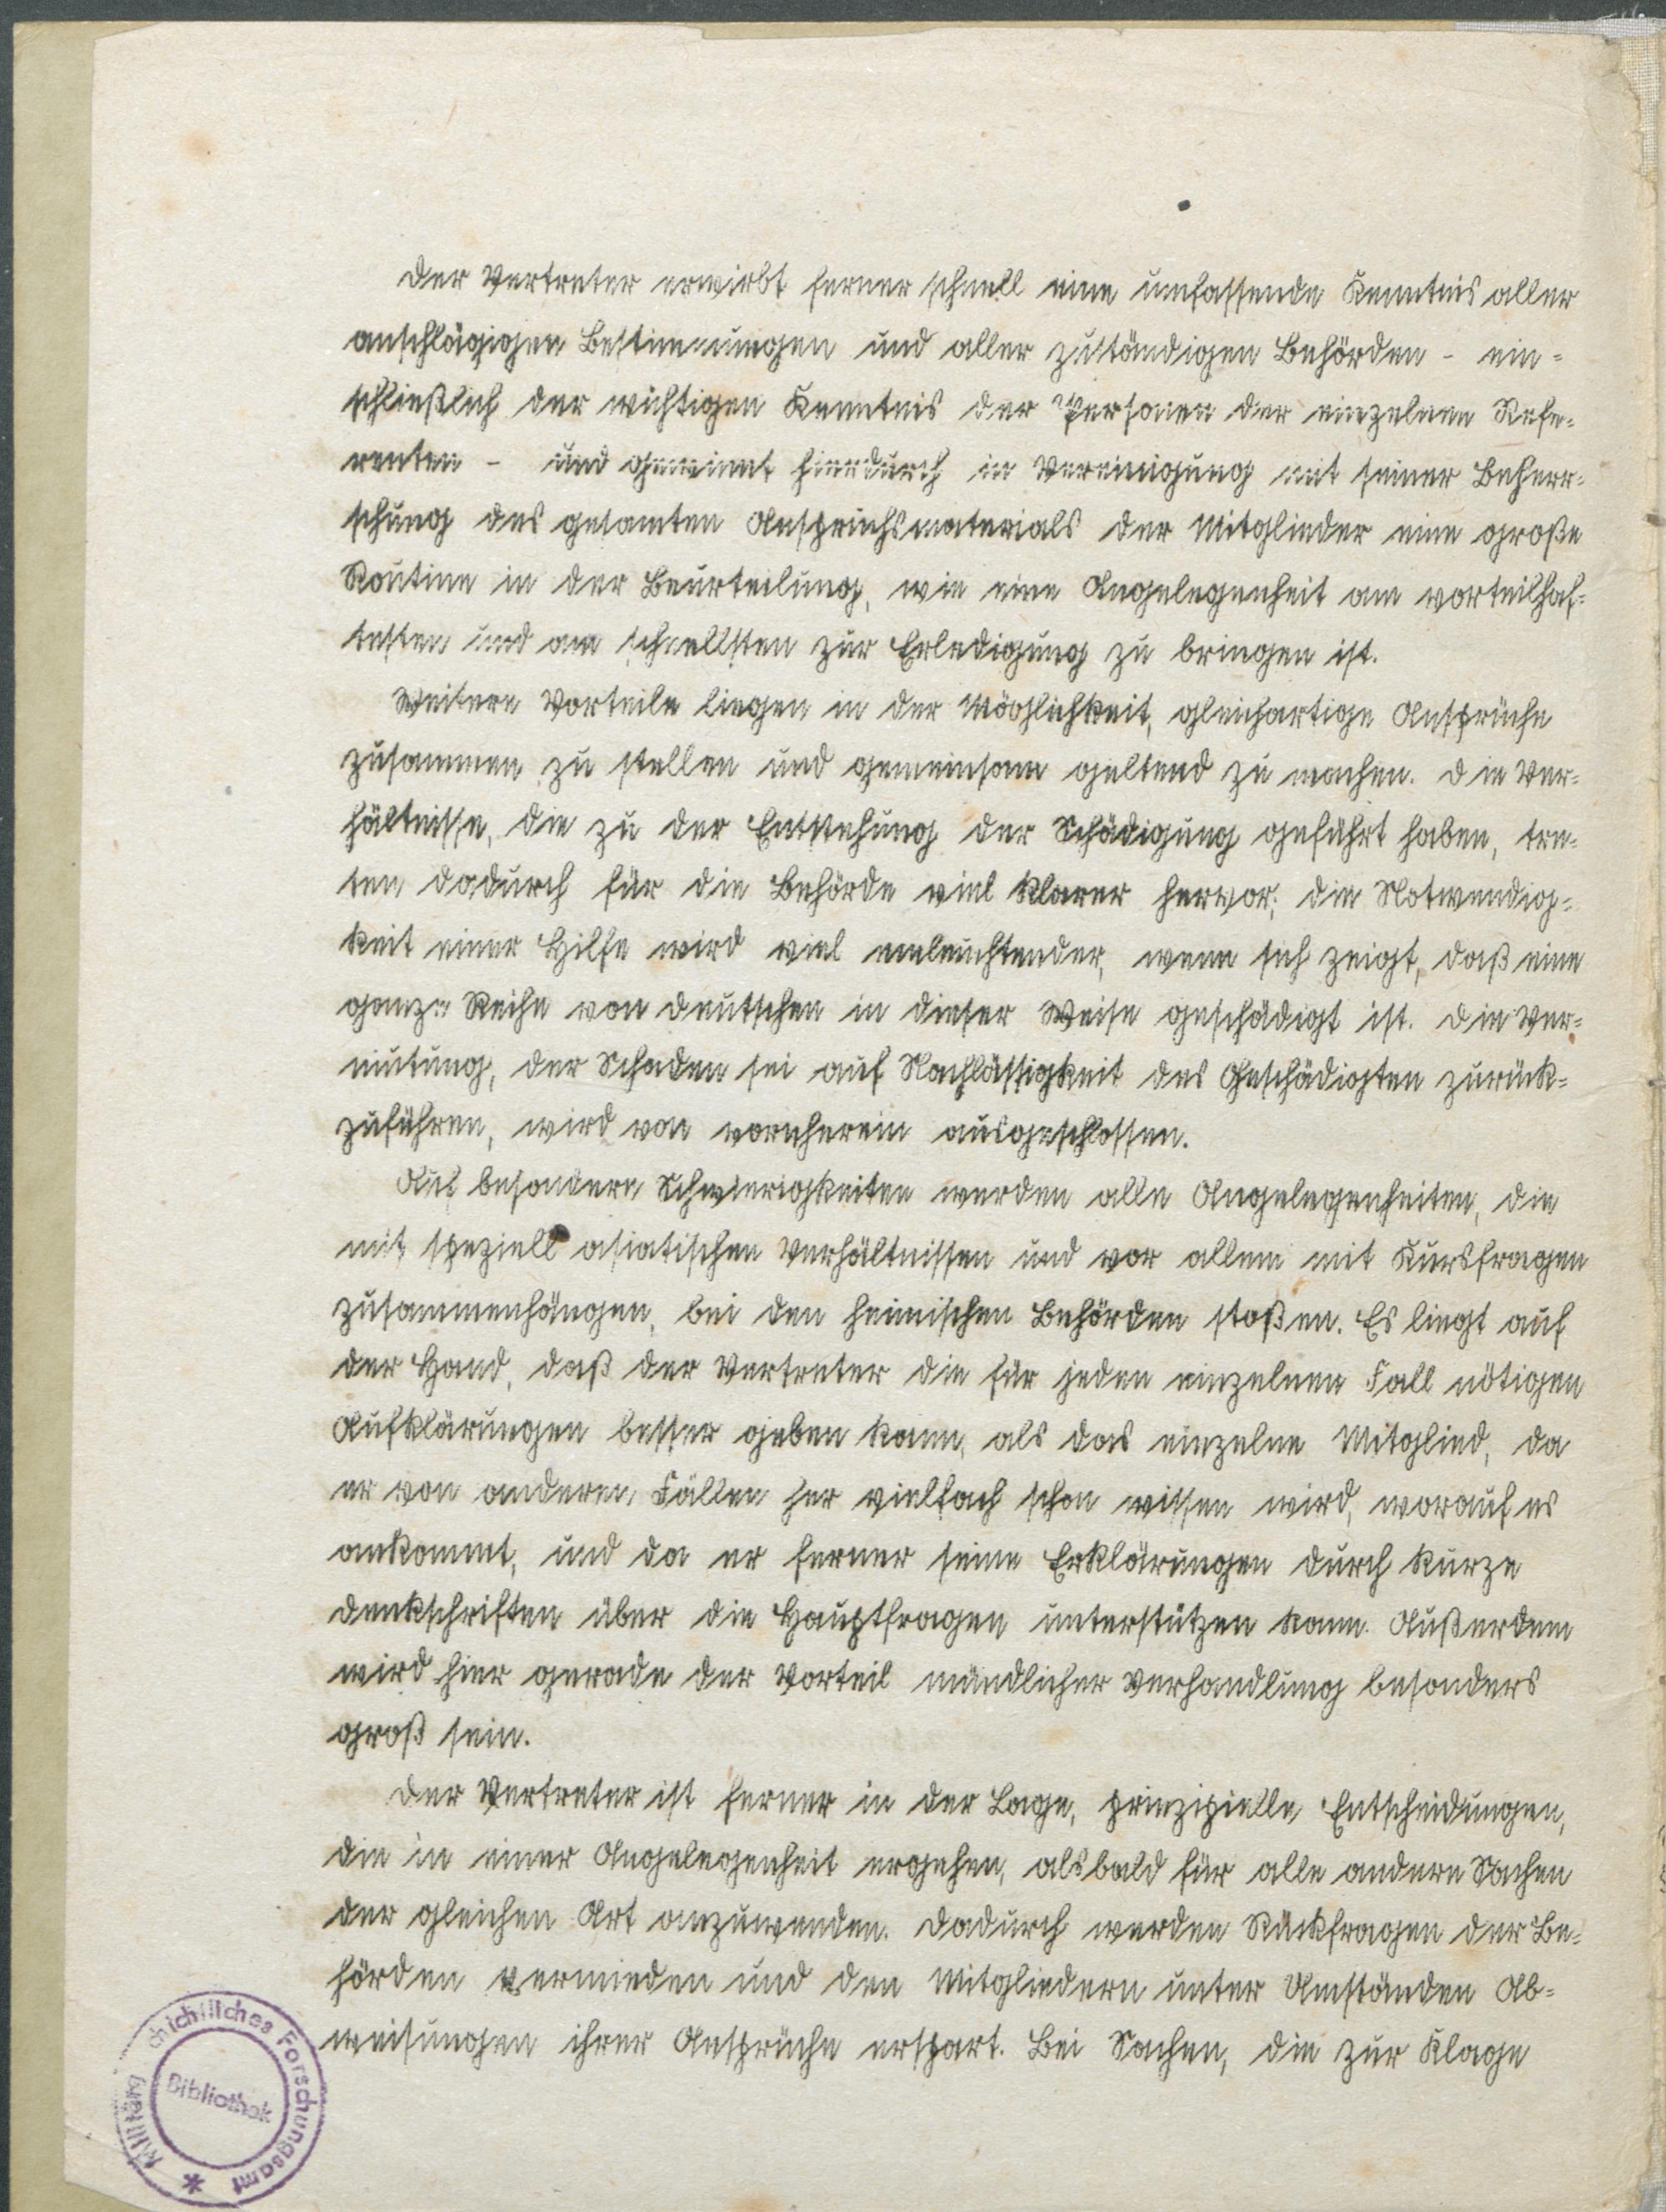 Der Vertreter erwirbt ferner schnell eine umfassende Kenntnis aller
anschlägigen Bestimmungen und aller zuständigen Behörden - ein=
schließlich der wichtigen Kenntnis der Personen der einzelnen Refe=
renten - und gewinnt hierdurch in Vereinigung mit seiner Beherr=
schung des gesamten Anspruchsmaterials der Mitglieder eine große
Routine in der Beurteilung, wie eine Angelegenheit am vorteilhaf=
testen und am schnellsten zur Erledigung zu bringen ist.
Weitere Vorteile liegen in der Möglichkeit, gleichartige Ansprüche
zusammen zu stellen und gemeinsam geltend zu machen. Die Ver=
hältnisse, die zu der Entstehung der Schädigung geführt haben, tre=
ten dadurch für die Behörde viel klarer hervor; die Notwendig=
keit einer Hilfe wird viel einleuchtender, wenn sich zeigt, daß eine
ganze Reihe von Deutschen in dieser Weise geschädigt ist. Die Ver=
mutung, der Schaden sei auf Nachlässigkeit des Geschädigten zurück=
zuführen, wird von vornherein ausgeschlossen.
Auf besondere Schwierigkeiten werden alle Angelegenheiten, die
mit speziell asiatischen Verhältnissen und vor allem mit Kursfragen
zusammenhängen, bei den heimischen Behörden stoßen. Es liegt auf
der Hand, daß der Vertreter die für jeden einzelnen Fall nötigen
Aufklärungen besser geben kann, als das einzelne Mitglied, da
er von anderen Fällen her vielfach schon wissen wird, worauf es
ankommt, und da er ferner seine Erklärungen durch kurze
Denkschriften über die Hauptfragen unterstützen kann. Außerdem
wird hier gerade der Vorteil mündlicher Verhandlung besonders
groß sein.
Der Vertreter ist ferner in der Lage, prinzipielle Entscheidungen,
die in einer Angelegenheit ergehen, alsbald für alle andere Sachen
der gleichen Art anzuwenden. Dadurch werden Rückfragen der Be=
hörden vermieden und den Mitgliedern unter Umständen Ab=
weisungen ihrer Ansprüche erspart. Bei Sachen, die zur Klage
chichtliches Forschungsamt
Bibliothek